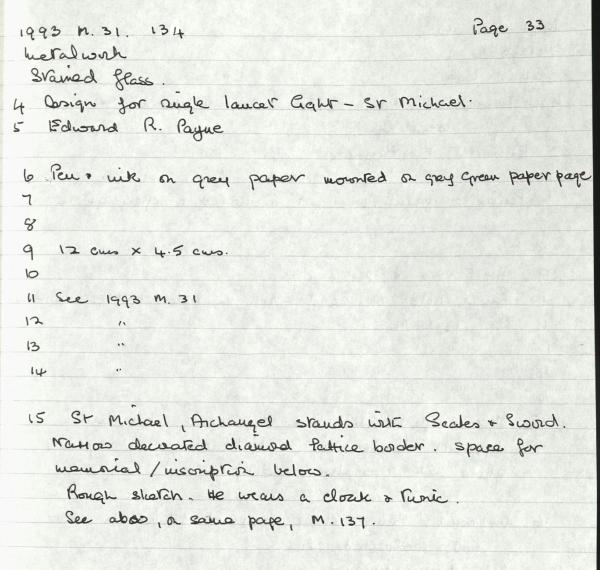 1993 M. 31. 134 Page 33
Metalwork
Stained Glass.
4 Design for single lancet light - St Michael.
5 Edward R. Payne
6 Pen & ink on grey paper mounted on grey green paper page
7
8
9 12 cms x 4.5 cms.
10
11 See 1993 M. 31
12 "
13 "
14 "
15 St Michael, Archangel stands with Scales & Sword.
Narrow decorated diamond lattice border. Space for
memorial / inscription below.
Rough sketch. He wears a cloak & tunic.
See also, on same page, M. 137.